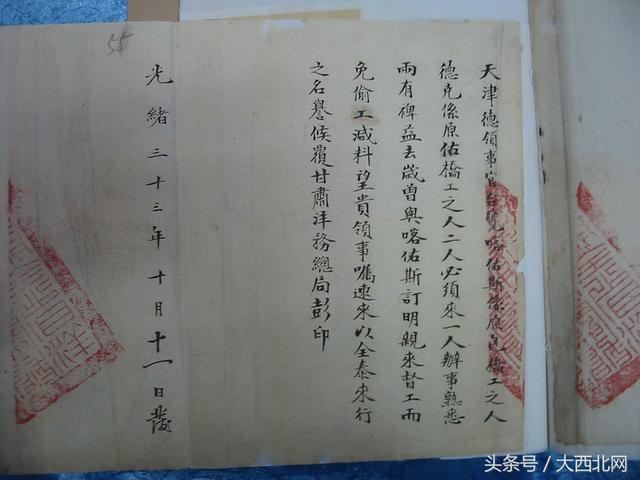 天津德領事官台覽喀佑斯係原包橋工之人
德克係原估橋工之人二人必須來一人辦事熟悉
兩有裨益去歲曾與喀佑斯訂明親來督工而
免偷工減料望貴領事囑速來以全泰來行
之名譽候覆甘肅洋務總局彭印
光緒三十三年十月十一日發
55
头条号/大西北网